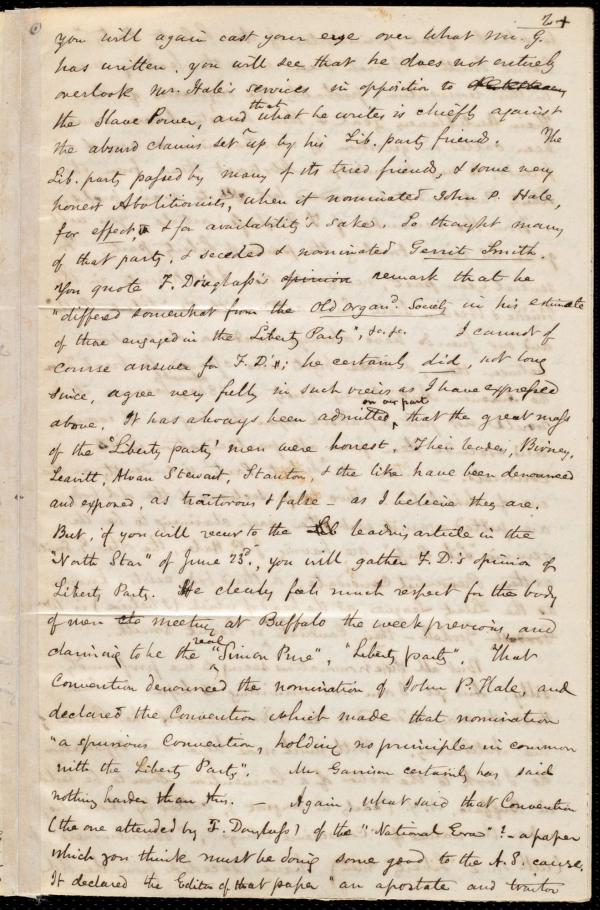 2+
you will again cast your eye over what Mr. G.
has written, you will see that he does not entirely
overlook Mr. Hale's services in opposition to
the Slave Power, and that what he writes is chiefly against
the absurd claims set up by his Lib. party friends. The
Lib. party passed by many of its tried friends, & some very
honest Abolitionists, when it nominated John P. Hale,
for effect, & for availability's sake. So thought many
of that party, & seceded & nominated Gerrit Smith.
You quote F. Douglass's opinion remark that he
"differed somewhat from the Old Organd. Society in his estimate
of those engaged in the Liberty Party", &c. &c. I cannot of
course answer for F. D.; he certainly did, not long
since, agree very fully in such views as I have expressed
above. It has always been admitted on our part, that the great mass
of the 'Liberty party' men were honest. Their leaders, Birney,
Leavitt, Alvan Stewart, Stanton, & the like have been denounced
and exposed, as traitorous & false – as I believe they are.
But, if you will recur to the leading article in the
"North Star" of June 23d., you will gather F. D.'s opinion of
Liberty Party. He clearly feels much respect for the body
of men meeting at Buffalo the week previous, and
claiming to be the real "Simon Pure", "Liberty party". That
Convention denounced the nomination of John P. Hale, and
declared the Convention which made that nomination
"a spurious Convention, holding no principles in common
with the Liberty Party". Mr. Garrison certainly has said
nothing harder than this. – Again, what said that Convention
(the one attended by F. Douglass) of the "National Era"? – a paper
which you think must be doing some good to the A. S. cause.
It declared the Editor of that paper "an apostate and traitor